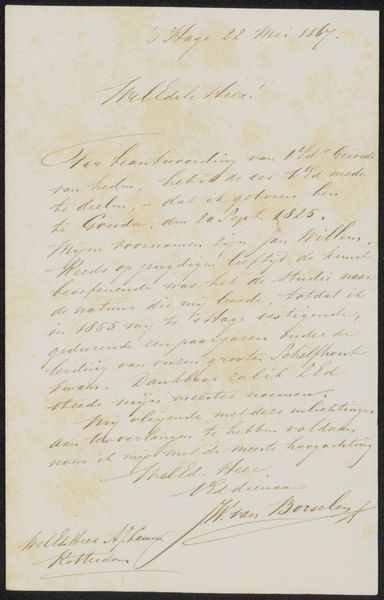 's Hage 22 Mei 1867.
WelEdele Heer!
Ter beantwoording van UEds. Geëerde
van heden, heb ik de eer UEd mede
te deelen, - dat ik geboren ben
te Gouda, den 20 Sept. 1825.
Mijne voornamen zijn Jan Willem.
Reeds op jeugdigen leeftijd, de kunst
beoefenende was het de studie naar
de natuur die mij leerde, totdat ik
in 1855 mij te 's Hage vestigende,
gedurende een paar jaren onder de
leiding van onzen grooten Schelfhout
kwam. Dankbaar zal ik ZEd
steeds mijn meester noemen.
Mij vleijende met deze inlichtingen
aan Uw verlangen te hebben voldaan
noem ik mij met de meeste hoogachting
WelEd. Heer
UEd dienaar
JW. van Borselen
WelEdHeer A J Lamme
Rotterdam